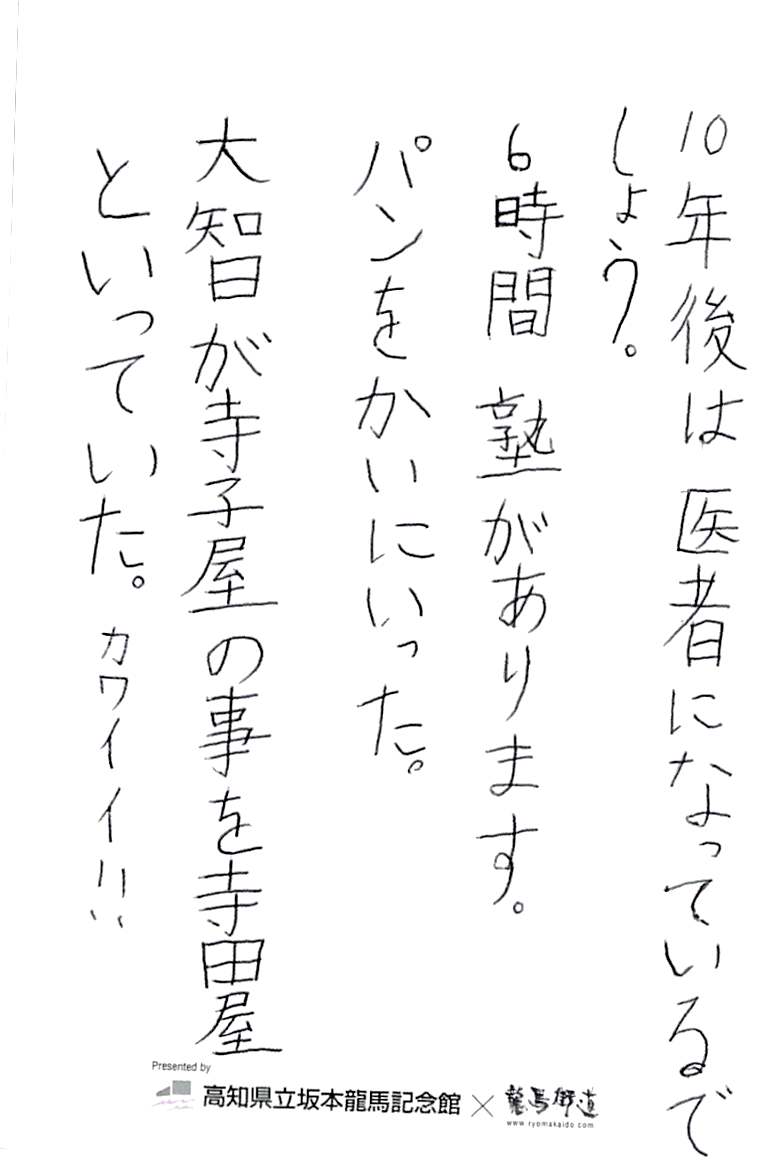 10年後は医者になっているで
しょう。
6時間 塾があります。
パンをかいにいった。
大智が寺子屋の事を寺田屋
といっていた。カワイイ!!
Presented by
高知県立坂本龍馬記念館×龍馬街道
www.ryomakaido.com